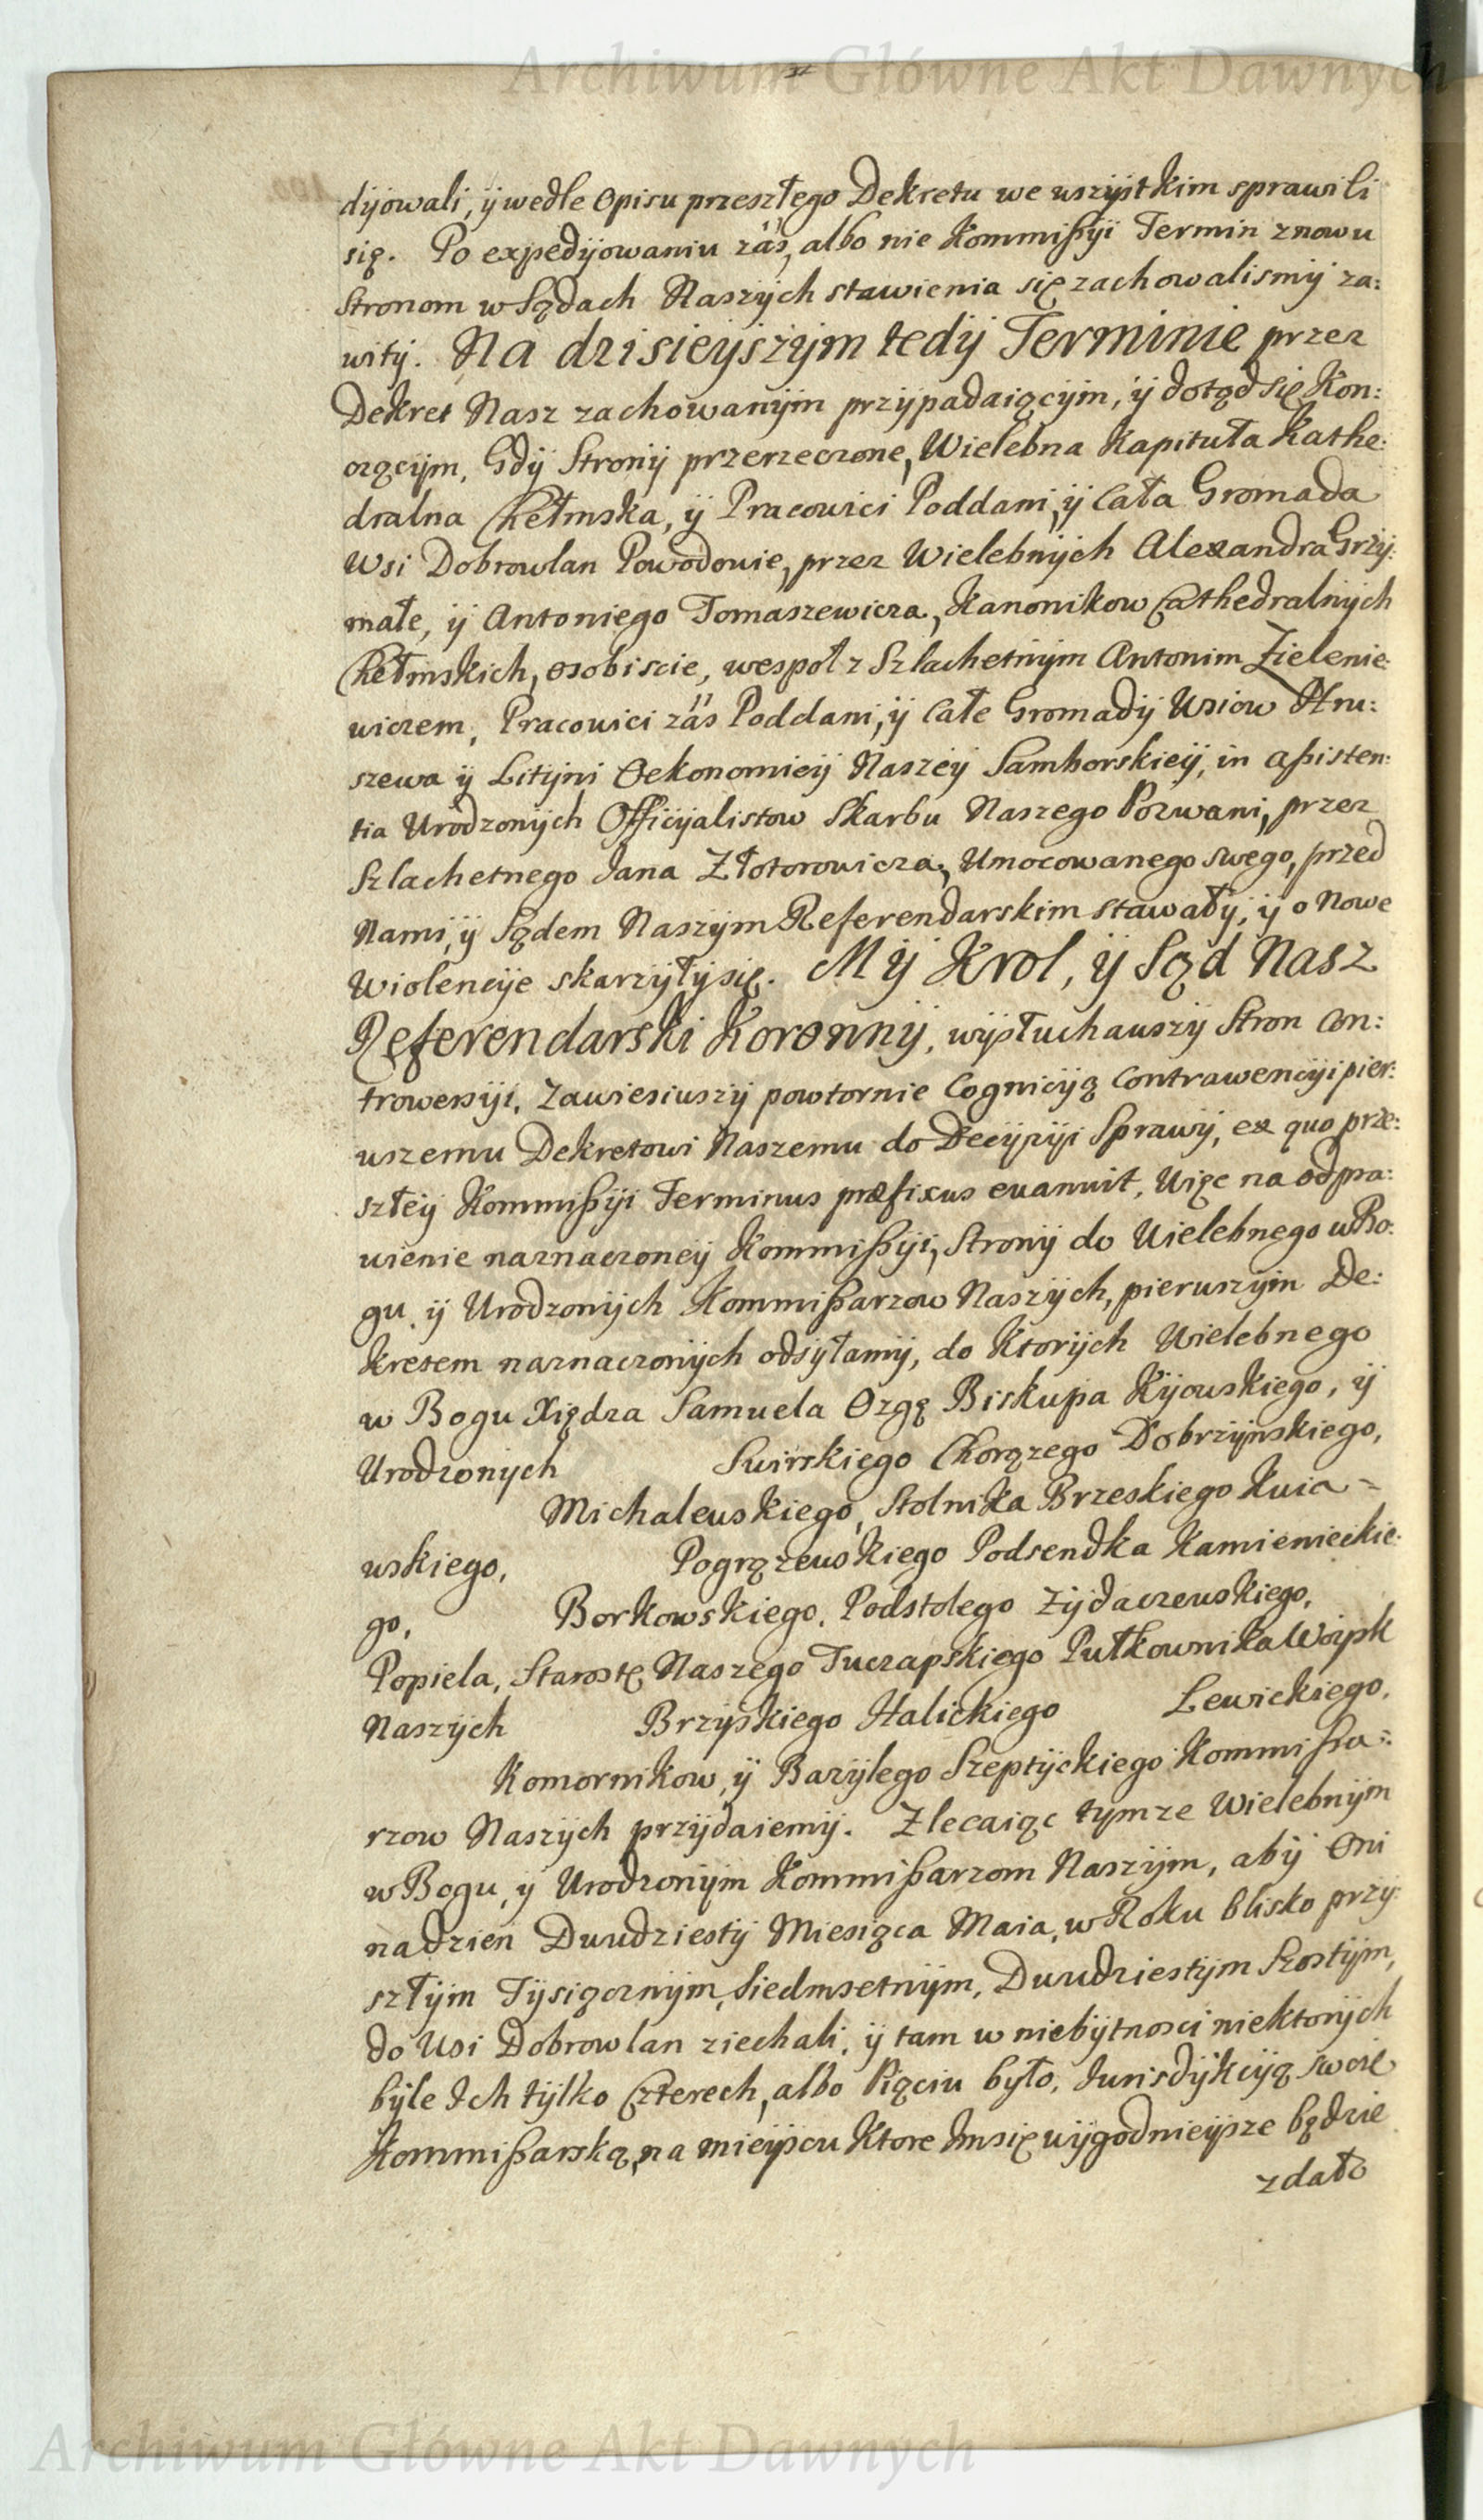 Archiwum Główne Akt Dawnych
dijowali, ij wedle Opisu przeszłego Dekretu we wszijstkim sprawili
się. Po expedijowaniu záś, albo nie Kommißiji Termin znowu
Stronom w Sądach Naszijch stawienia się zachowalismij za:
witij. Na dzisieijszijm tedij Terminie przez
Dekret Nasz zachowanijm przijpadaiącijm, ij dotąd się Kon:
czącijm, Gdij Stronij przerzeczone, Wielebna Kapituła Kathe:
dralna Chełmska, ij Pracowici Poddani, ij Cała Gromada
Wsi Dobrowlan Powodowie, przez Wielebnijch Alexandra Grzij:
małe, ij Antoniego Tomaszewicza, Kanonikow Cathedralnijch
Chełmskich, osobiscie, wespoł z Szlachetnijm Antonim Zielenie:
wiczem, Pracowici záś Poddani, ij Całe Gromadij Wsiow Hru:
szewa ij Litijni Oekonomieij Naszeij Samborskieij, in aßisten:
tia Urodzonijch Officijalistow Skarbu Naszego Pozwani, przez
Szlachetnego Jana Złotorowicza, Umocowanego swego, przed
Nami, ij Sądem Naszijm Referendarskim stawałij, ij o Nowe
Wiolencije skarzijłij się. Mij Krol, ij Sąd Nasz
Referendarski Koronnij, wijsłuchawszij Stron Con:
trowersiji, Zawiesiwszij powtornie Cognicijją Contrawenciji pier:
wszemu Dekretowi Naszemu do Decijziji Sprawij, ex quo prze:
szłeij Kommißiji Terminus præfixus evanuit, Więc na odpra:
wienie naznaczoneij Kommißiji, Stronij do Wielebnego w Bo:
gu, ij Urodzonijch Kommißarzow Naszijch, pierwszijm De:
kretem naznaczonijch odsijłamij, do Ktorijch Wielebnego
w Bogu Xiędza Samuela Ozgę Biskupa Kijowskiego, ij
Urodzonijch Swirskiego Chorązego Dobrzijnskiego,
Michalewskiego, Stolnika Brzeskiego Kuia=
wskiego, Pogrązewskiego Podsendka Kamienieckie:
go, Borkowskiego, Podstolego Zijdaczewskiego,
Popiela, Starostę Naszego Tuczapskiego Pułkownika Woijsk
Naszijch Brzijskiego Halickiego Lewickiego,
Komornikow, ij Bazijlego Szeptijckiego Kommißa=
rzow Naszijch przijdaiemij. Zlecaiąc tijmze Wielebnijm
w Bogu, ij Urodzonijm Kommißarzom Naszijm, abij Oni
na dzien Dwudziestij Miesiąca Maia, w Roku blisko przij:
szłijm Tijsiącznijm, Siedmsetnijm, Dwudziestijm Szostijm,
do Wsi Dobrowlan ziechali, ij tam w niebijtnosci niektorijch
bijle Ich tijlko Czterech, albo Pięciu bijło, Jurisdijkcijją swoię
Kommißarską, na mieijscu Ktore Im się wijgodnieijsze będzie
zdało
Archiwum Główne Akt Dawnych